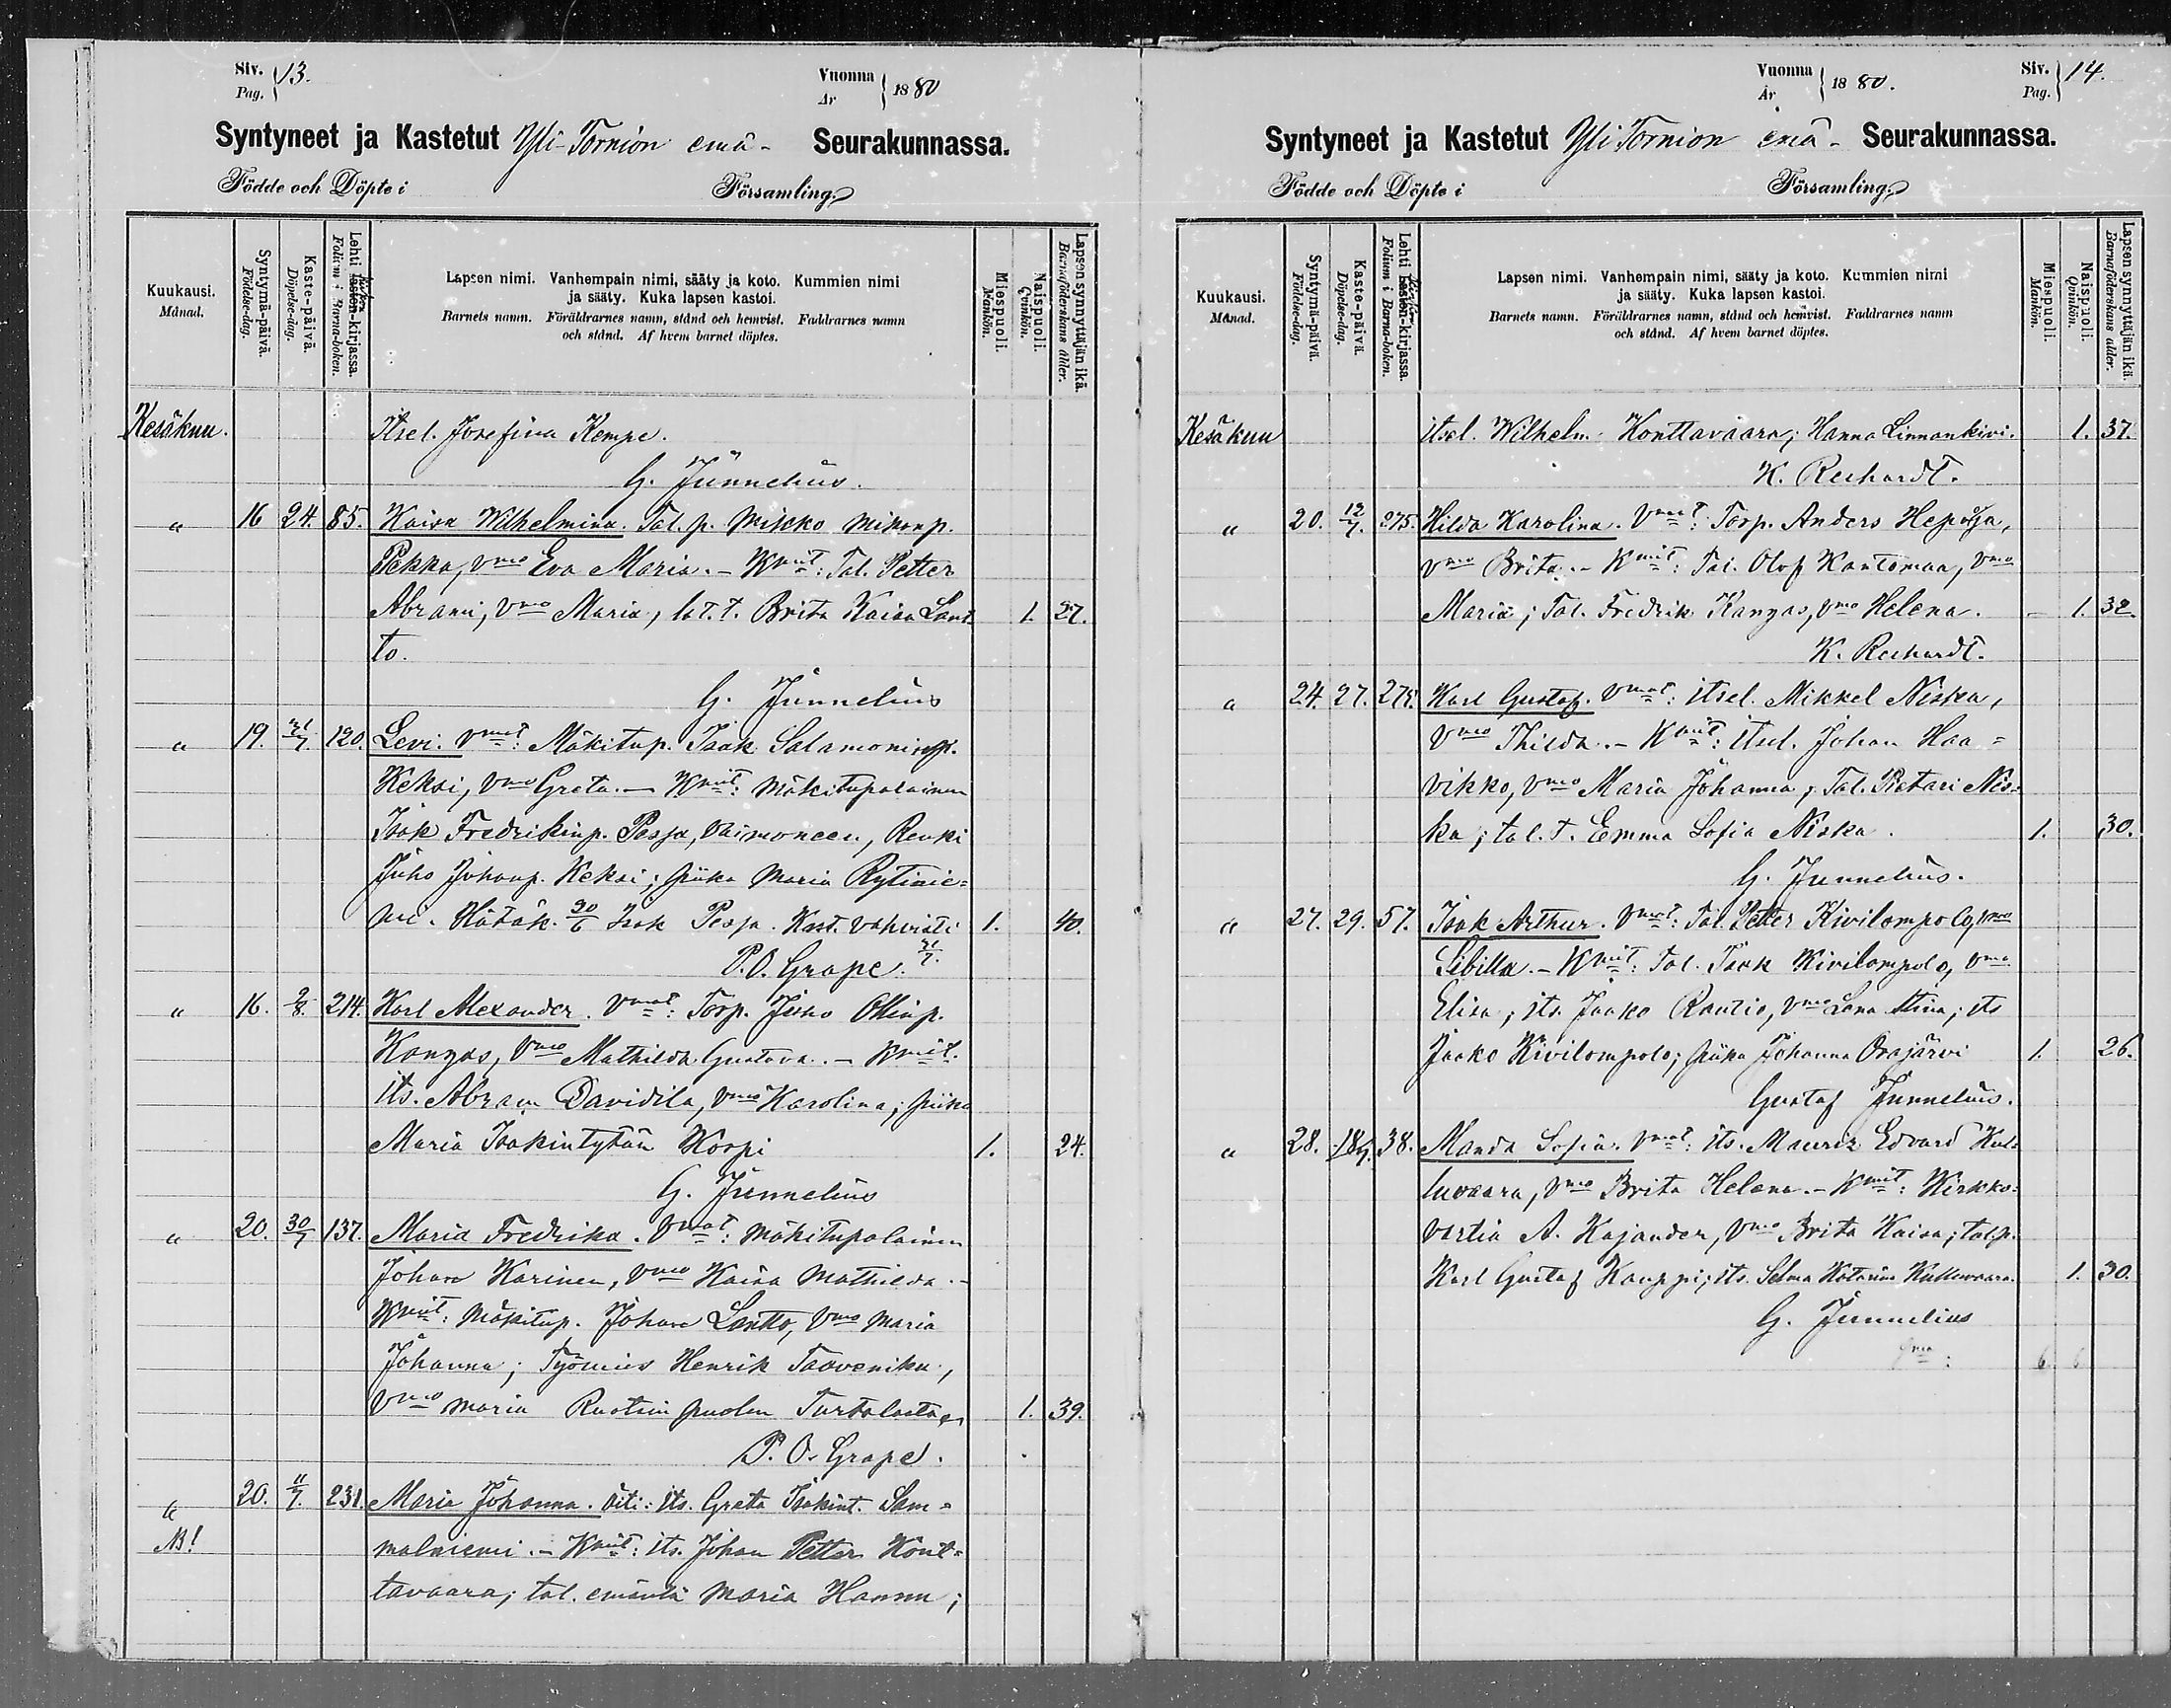 Siv. Pag. 13.
Vuonna År 1880
Syntyneet ja Kastetut Yli-Tornion emä- Seurakunnassa.
Födde och Döpte i Församling.
Kuukausi. Månad.
Syntymä-päivä. Födelse-dag.
Kaste-päivä. Döpelse-dag.
Lehti lasten-kirjassa. Folium i Barna-boken.
Lapsen nimi. Vanhempain nimi, sääty ja koto. Kummien nimi
ja sääty. Kuka lapsen kastoi.
Barnets namn. Föräldrarnes namn, stånd och hemvist. Faddrarnes namn
och stånd. Af hvem barnet döptes.
Miespuoli. Mankön.
Naispuoli. Qvinkön.
Lapsen synnyttäjän ikä. Barnaföderskans ålder.
Kesäkuu. Itsel. Josefina Kempe.
G. Junnelius.
" 16 24. 85. Kaisa Wilhelmina. Tal. p. Mikko Mikonp.
Pekka, vmo Eva Maria. - Kmit: Tal. Petter
Abrami, vmo Maria, tal. t. Brita Kaisa Lant- 1. 27.
to.
G. Junnelius
" 19. 21/7. 120. Levi. Vmat: Mäkitup. Isak Salamoninp.
Keksi, vmo Greta. - Kmit: Mäkitupalainen
Isak Fredrikinp. Pesja, vaimoneen, Renki
Juho Johanp. Keksi; piika Maria Rytinie-
mi. Hätäk. 20/6 Isak Pesja. Kast. vahvisti 1. 40.
P.O. Grape. 21/7.
" 16. 9/8. 214. Karl Alexander. Vmat: Torp. Juho Ollinp.
Kangas, Vmo Mathilda Gustava. - Kmit.
its. Abram Davidila, vmo Karolina; piika
Maria Isakintytär Korpi 1. 24.
G. Junnelius
" 20. 30/7 137. Maria Fredrika. Vmat: Mäkitupalainen
Johan Karinen, vmo Kaisa Mathilda. -
Kmit: Mäkitup. Johan Lantto, Vmo Maria
Johanna; Työmies Henrik Taaveniku,
Vmo Maria Ruotsin puolen Turtolasta 1. 39.
P. O. Grape.
" 20. 11/7. 231. Maria Johanna. äiti: its. Greta Isakint. Sam-
NB! malniemi. - Kmit: its. Johan Petter Kont-
tavaara; tal. emäntä Maria Hannu;
Vuonna År 1880.
Siv. Pag. 14.
Syntyneet ja Kastetut Yli Tornion emä- Seurakunnassa.
Födde och Döpte i Församling.
Kuukausi. Månad.
Syntymä-päivä. Födelse-dag.
Kaste-päivä. Döpelse-dag.
Lehti lasten-kirjassa. Folium i Barna-boken.
Lapsen nimi. Vanhempain nimi, sääty ja koto. Kummien nimi
ja sääty. Kuka lapsen kastoi.
Barnets namn. Föräldrarnes namn, stånd och hemvist. Faddrarnes namn
och stånd. Af hvem barnet döptes.
Miespuoli. Mankön.
Naispuoli. Qvinkön.
Lapsen synnyttäjän ikä. Barnaföderskans ålder.
Kesäkuu itsel. Wilhelm Konttavaara; Hanna Linnankivi. 1. 37.
K. Rechardt.
" 20. 12/7. 275. Hilda Karolina. Vmat: Torp. Anders Hepooja,
vmo Brita. - Kmit: Tal. Olof Kantomaa, vmo
Maria; Tal. Fredrik Kangas, vmo Helena. 1. 32
K. Rechardt.
" 24. 27. 275. Karl Gustaf. Vmat: itsel. Mikkel Niska,
Vmo Thilda. - Kmit: itsel. Johan Haa-
vikko, vmo Maria Johanna; Tal. Pietari Nis-
ka; tal. t. Emma Sofia Niska. 1. 30.
G. Junnelius.
" 27. 29. 57. Isak Arthur. Vmat: Tal. Petter Kivilompolo, vmo
Sibilla. - Kmit: Tal. Isak Kivilompolo, vmo
Elisa, its. Jaako Rautio, vmo Lena Stina; its
Jaako Kivilompolo; piika Johanna Orajärvi 1. 26.
Gustaf Junnelius.
" 28. 18/7. 38. Manda Sofia. Vmat: its. Mauriz Edvard Kul-
luvaara, vmo Brita Helena. - Kmit: Kirkko-
vartia A. Kajander, Vmo Brita Kaisa; tal. p.
Karl Gustaf Kauppi; its. Selma Kulluvaara. 1. 30.
G. Junnelius
6 6